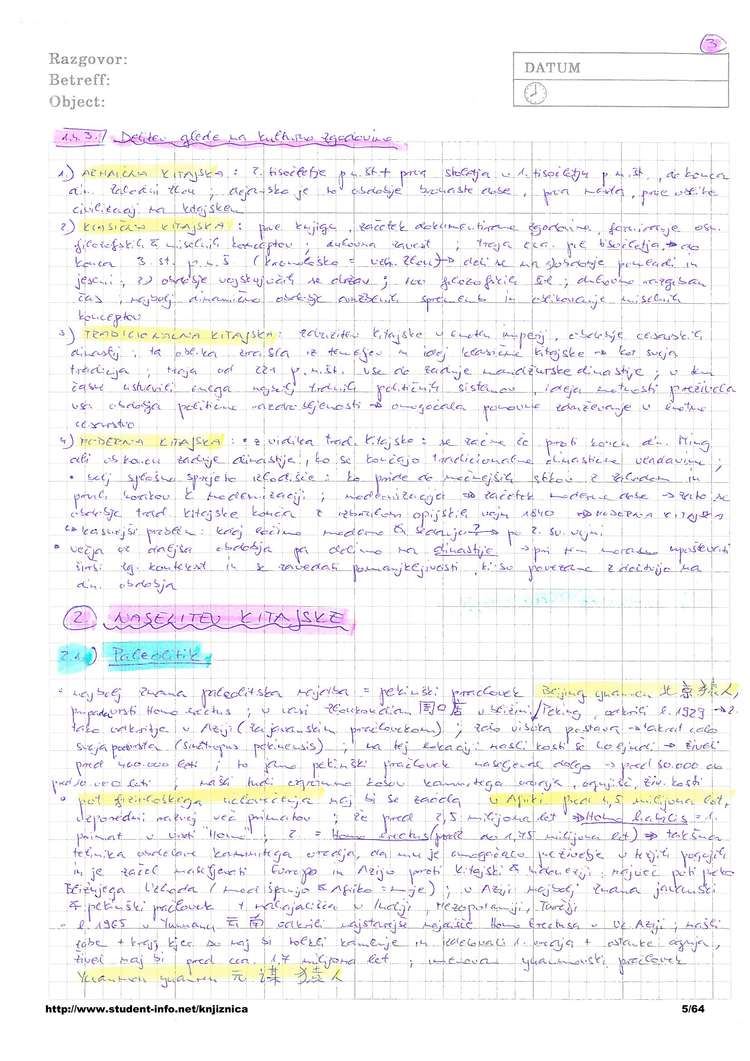 3
Razgovor:
Betreff:
Object:
DATUM
1.4.3.) Delitev glede na kulturno zgodovino
1.) ARHAIČNA KITAJSKA: 2. tisočletje p.n.št + prva stoletja v 1. tisočletju p.n.št., do konca
din. Zahodni Zhou; dejansko je to obdobje bronaste dobe, prva mesta, prve velike
civilizacij na Kitajskem
2) KLASIČNA KITAJSKA: prve knjige, začetek dokumentirane zgodovine, formiranje osn.
filozofskih & miselnih konceptov; duhovna zavest; traja cca. pol tisočletja → do
konca 3. st. p.n.š (kronološko = vzh. Zhou) → deli se na obdobje pomladi in
jeseni; 2) obdobje vojskujočih se držav; 100 filozofskih šol; duhovno razgiban
čas, najbolj dinamično obdobje družbenih sprememb in oblikovanje miselnih
konceptov
3) TRADICIONALNA KITAJSKA: združitev Kitajske v enoten imperij, obdobje cesarskih
dinastij; ta oblika zrasla iz temeljev in idej klasične Kitajske → kot svoja
tradicija; traja od 221 p.n.št. vse do zadnje mandžurske dinastije; v tem
času ustvarili enega najbolj trdnih političnih sistemov, ideja enotnosti preživela
vsa obdobja politične razdrobljenosti → omogočala ponovno združevanje v enotno
cesarstvo
4) MODERNA KITAJSKA: • z vidika trad. Kitajske: se začne že proti koncu din. Ming
ali ob koncu zadnje dinastije, ko se končajo tradicionalne dinastične vladavine;
• bolj splošno sprejeto izhodišče: ko pride do močnejših stikov z Zahodom in
prvih korakov k modernizaciji; modernizacija → začetek moderne dobe → zato se
obdobje trad. Kitajske konča z izbruhom opijskih vojn 1840 → MODERNA KITAJSKA
↳ kasnejši problem: kdaj ločimo moderno & sedanjo? → po 2. sv. vojni
• večja oz. daljša obdobja pa delimo na dinastije → pri tem moramo upoštevati
širši zg. kontekst in se zavedati pomanjkljivosti, ki so povezane z delitvijo na
din. obdobja
2. NASELITEV KITAJSKE
2.1.) Paleolitik
- najbolj znana paleolitska najdba = pekinški pračlovek Beijing yuanren 北京猿人,
pripada vrsti Homo erectus; v vasi Zhoukoudian 周口店 v bližini Peking, odkrili l. 1929 → 2.
tako odkritje v Aziji (za javanskim pračlovekom); zelo visoka postava → takrat celo
svoja podvrsta (Sinatropus pekinensis); na tej lokaciji našli kosti še 40 ljudi → živeli
pred 400.000 leti; to jamo pekinški pračlovek naseljeval dolgo → pred 50.000 do
pred 10.000 leti; našli tudi ogromno kosov kamnitega orodja, ognjišč, živ. kosti
• pot fiziološkega učlovečenja naj bi se začela v Afriki pred 4,5 milijona let,
neposredni razvoj več primatov; že pred 2,5 milijona let → Homo habilis = 1.
primat v vrsti "Homo"; 2. = Homo erectus (pred do 1,75 milijona let) → takšna
tehnika obdelave kamnitega orodja, da mu je omogočalo preživetje v težjih pogojih
in je začel naseljevati Evropo in Azijo proti Kitajski & Indoneziji, največ poti preko
Bližnjega Vzhoda (med Španijo & Afriko = morje); v Aziji najbolj znana javanski
& pekinški pračlovek + nahajališča v Indiji, Mezopotamiji, Turčiji
- l. 1965 v Yunnanu 云南 odkrili najstarejše najdišče Homo Erectusa v Vz. Aziji; našli
zobe + kraj, kjer so naj bi tolkli kamenje in izdelovali 1. orodja + ostanke ognja,
živel naj bi pred cca. 1,7 milijona let; imenovan yuanmouski pračlovek
Yuanmou yuanren 元谋猿人
http://www.student-info.net/knjiznica
5/64